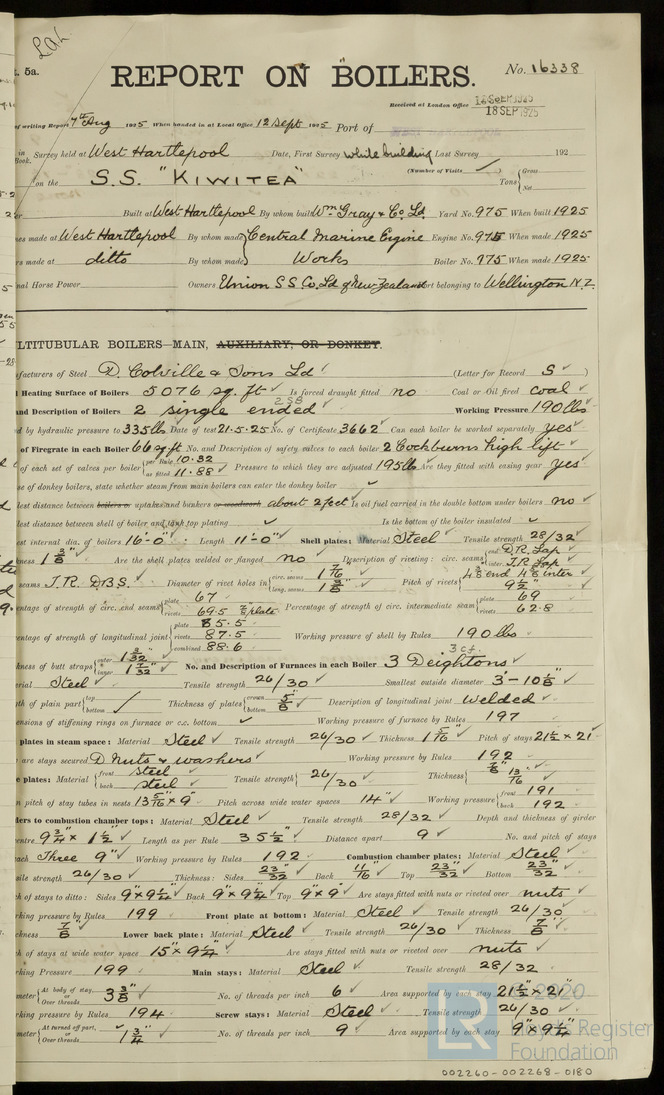 Lal.
t. 5a.
REPORT ON BOILERS.
No. 16338
Received at London Office
18 SEP 1925
of writing Report 7th Aug 1925 When handed in at Local Office 12 Sept 1925 Port of
in Book. Survey held at West Hartlepool Date, First Survey while building Last Survey 192
(Number of Visits ✓ )
on the S.S. "KIWITEA" Tons { Gross Net
Built at West Hartlepool By whom built Wm Gray & Co. Ld. Yard No. 975 When built 1925
nes made at West Hartlepool By whom made Central Marine Engine Engine No. 975 When made 1925
rs made at ditto By whom made Works Boiler No. 975 When made 1925
nal Horse Power Owners Union S S Co. Ld of New Zealand Port belonging to Wellington N.Z.
LTITUBULAR BOILERS—MAIN, AUXILIARY, OR DONKEY.
facturers of Steel D. Colville & Sons Ld (Letter for Record S ✓ )
l Heating Surface of Boilers 5076 sq. ft ✓ Is forced draught fitted no Coal or Oil fired coal ✓
and Description of Boilers 2 single ended 2 SB Working Pressure 190 lbs
d by hydraulic pressure to 335 lbs Date of test 21.5.25 No. of Certificate 3662 Can each boiler be worked separately yes ✓
of Firegrate in each Boiler 66 sq. ft No. and Description of safety valves to each boiler 2 Cockburns high lift ✓
of each set of valves per boiler { per Rule 10.32 as fitted 11.88 ✓ Pressure to which they are adjusted 195 lb. Are they fitted with easing gear yes ✓
se of donkey boilers, state whether steam from main boilers can enter the donkey boiler ✓
lest distance between boilers or uptakes and bunkers or woodwork about 2 feet Is oil fuel carried in the double bottom under boilers no ✓
lest distance between shell of boiler and tank top plating ✓ Is the bottom of the boiler insulated ✓
est internal dia. of boilers 16'-0" Length 11'-0" Shell plates: Material Steel ✓ Tensile strength 28/32 ✓
kness 1 3/8" Are the shell plates welded or flanged no Description of riveting: circ. seams { end D.R. Lap inter. T.R. Lap
seams T.R. D.B.S. Diameter of rivet holes in { circ. seams 1 7/16" long. seams 1 3/8" Pitch of rivets { 4 3/8 end 4 3/8 inter 9 1/2"
entage of strength of circ. end seams { plate 67 rivets 69.5 Percentage of strength of circ. intermediate seam { plate 69 rivets 62.8
entage of strength of longitudinal joint { plate 85.5 rivets 87.5 combined 88.6 Working pressure of shell by Rules 190 lbs
kness of butt straps { outer 1 3/32" inner 1 7/32" No. and Description of Furnaces in each Boiler 3 Deightons 3 cf. ✓
rial Steel ✓ Tensile strength 26/30 ✓ Smallest outside diameter 3'-10 1/8" ✓
th of plain part { top bottom ✓ Thickness of plates { crown bottom 5/8" Description of longitudinal joint welded ✓
ensions of stiffening rings on furnace or c.c. bottom ✓ Working pressure of furnace by Rules 197
plates in steam space: Material Steel ✓ Tensile strength 26/30 ✓ Thickness 1 5/16" ✓ Pitch of stays 21 1/2 × 21
are stays secured D nuts & washers Working pressure by Rules 192
e plates: Material { front Steel back Steel Tensile strength { 26/30 Thickness { 7/8" 13/16
n pitch of stay tubes in nests 13 5/16 × 9" Pitch across wide water spaces 14" ✓ Working pressure { front 191 back 192
ders to combustion chamber tops: Material Steel ✓ Tensile strength 28/32 ✓ Depth and thickness of girder
entre 9 3/4" × 1 1/2" Length as per Rule 35 1/2" ✓ Distance apart 9" ✓ No. and pitch of stays
ach Three 9" ✓ Working pressure by Rules 192 Combustion chamber plates: Material Steel ✓
sile strength 26/30 ✓ Thickness: Sides 23/32 Back 11/16 Top 23/32 Bottom 23/32
ch of stays to ditto: Sides 9" × 9 1/4" Back 9" × 9 1/4" Top 9" × 9" Are stays fitted with nuts or riveted over nuts ✓
rking pressure by Rules 199 Front plate at bottom: Material Steel ✓ Tensile strength 26/30 ✓
ckness 7/8" Lower back plate: Material Steel ✓ Tensile strength 26/30 ✓ Thickness 7/8" ✓
h of stays at wide water space 15" × 9 1/4" Are stays fitted with nuts or riveted over nuts ✓
rking Pressure 199 Main stays: Material Steel ✓ Tensile strength 28/32
meter { At body of stay, or Over threads 3 3/8" ✓ No. of threads per inch 6 ✓ Area supported by each stay 21 1/2" × 21"
rking pressure by Rules 194 Screw stays: Material Steel ✓ Tensile strength 26/30 ✓
meter { At turned off part, or Over threads 1 3/4" ✓ No. of threads per inch 9 ✓ Area supported by each stay 9" × 9 1/4"
© 2020
LR
Lloyd's Register
Foundation
002260-002268-0180